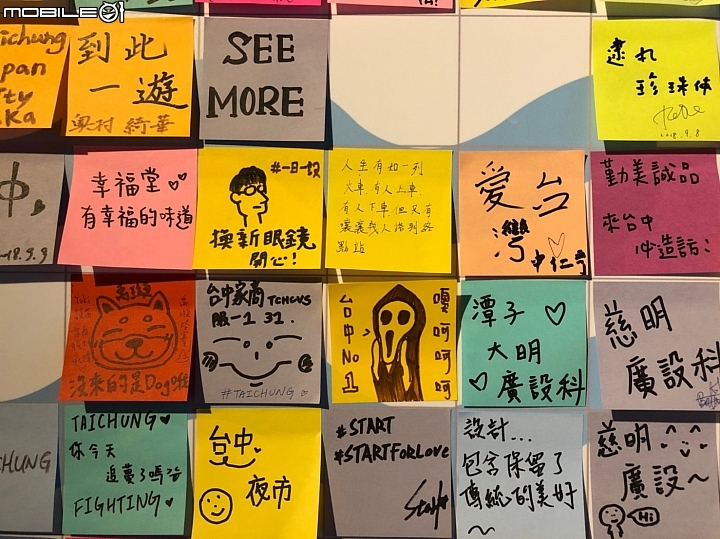 MOBILE01
到此
一遊
奧村 綺華
SEE
MORE
珍珠体
2018.9.8
幸福堂♡♡
有幸福的味道
#一日一坑
換新眼鏡
開心!
人生有如一列
火車,有人上車,
有人下車,但又有
點站
愛台
灣
勤美誠品
來台中
必造訪:)
18.9.9
沒來的是Dog啦
台中家商TCHCVS
服一1 31.
#TAICHUNG
台中No1
嘎呵呵呵
潭子♡
大明
♡廣設科
慈明
廣設科
CHUNG
TAICHUNG♥
你今天
追夢了嗎?
FIGHTING♥
台中
夜市
#START
#STARTFORLOVE
設計...
包含保留了
傳統的美好
~
慈明
廣設~
Hi